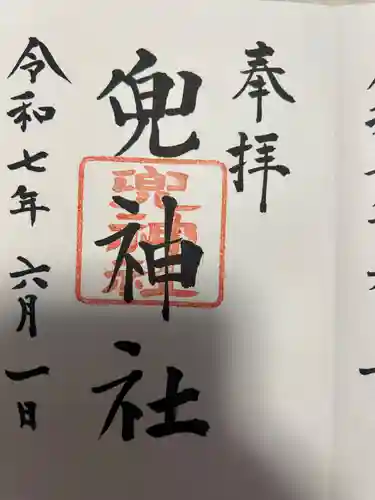 奉拝
兜神社
兜神社
令和七年 六月一日